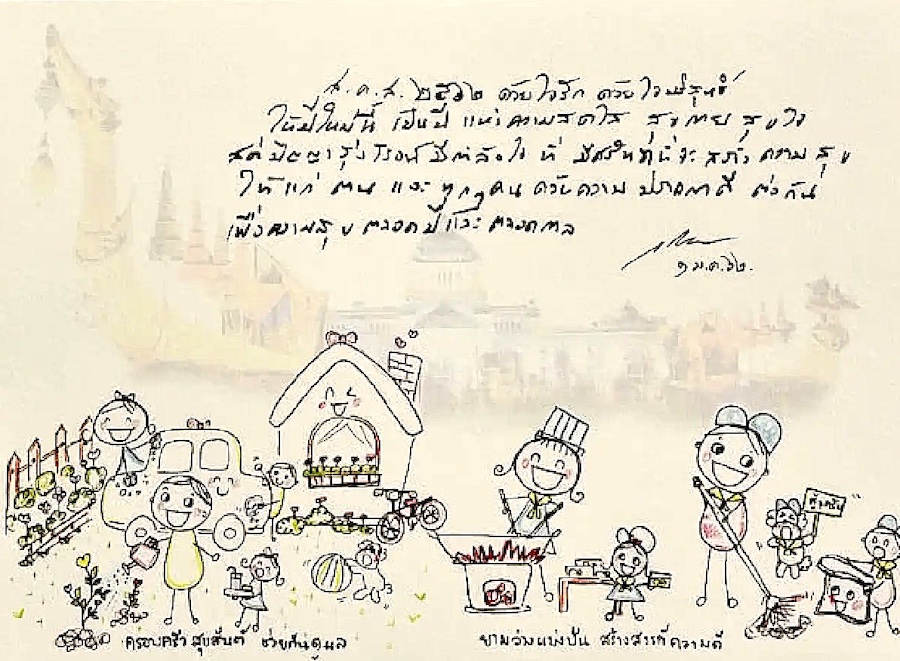 ส.ค.ส. ๒๕๖๒ ด้วยใจรัก ด้วยใจบริสุทธิ์
ให้ปีใหม่นี้ เป็นปี แห่งความสดใส สุขกาย สุขใจ
สติปัญญารุ่งโรจน์ มีกำลังใจ ที่ จะสร้างความสุข
ให้แก่ ตน และทุกๆคน ด้วยความ ปรารถนาดี ต่อกัน
เพื่อความสุข ตลอดปีและ ตลอดกาล
๑ ม.ค. ๖๒.
ครอบครัว สุขสันต์ ช่วยกันดูแล
ยามว่างแบ่งปัน สร้างสรรค์ ความดี